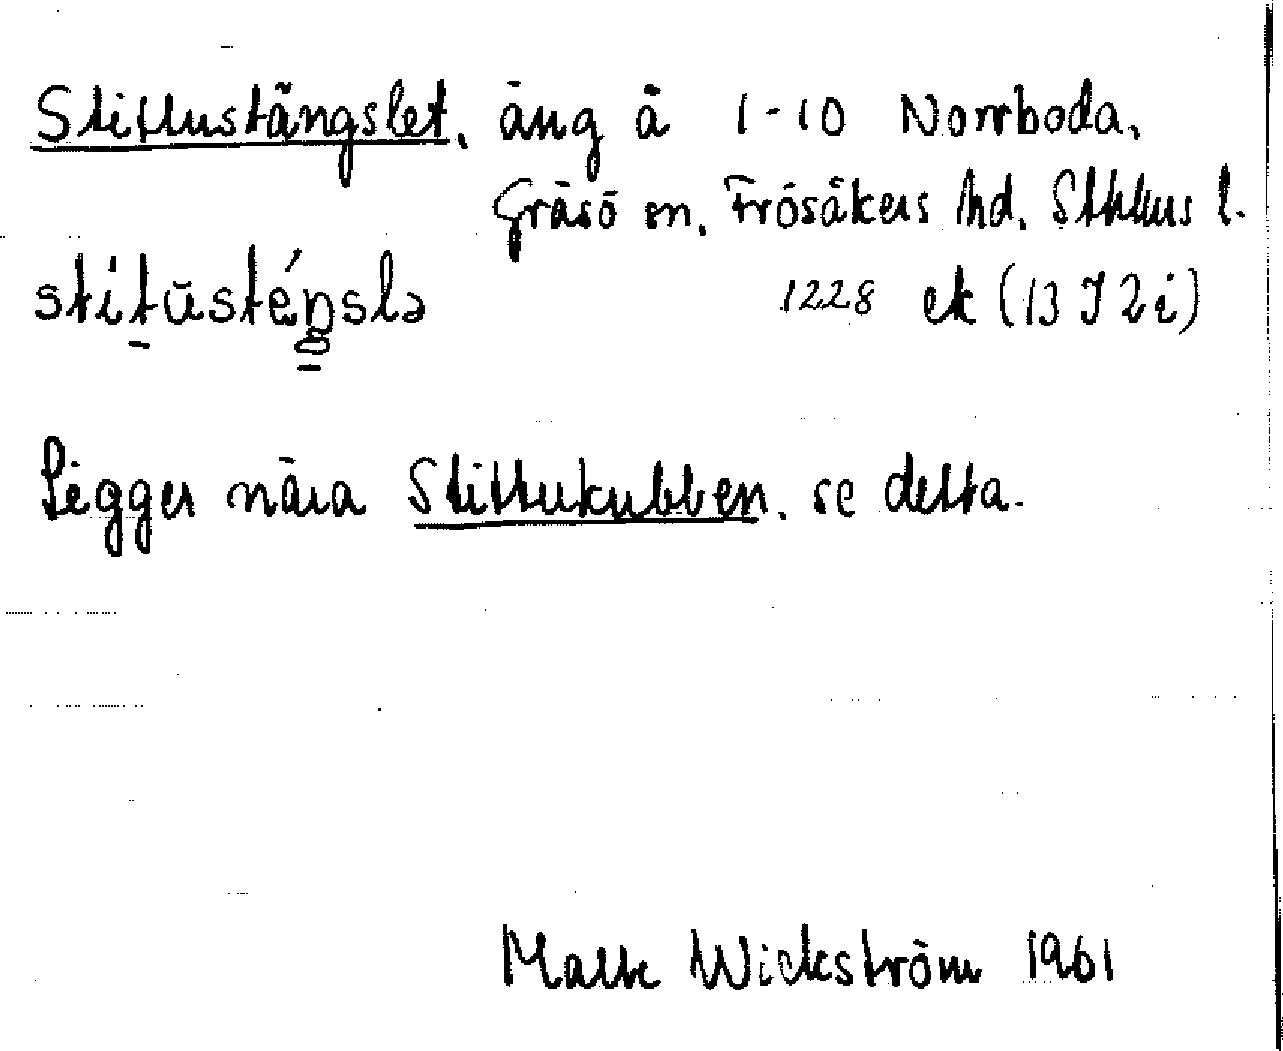 Stittustängslet, äng å 1-10 Norrboda,
Gräsö sn, Frösåkers hd. Sthlms l.
stitūsté̱ŋslə 1228 ek (13 I 2 i)
Ligger nära Stittukubben, se detta.
Malte Wickström 1961